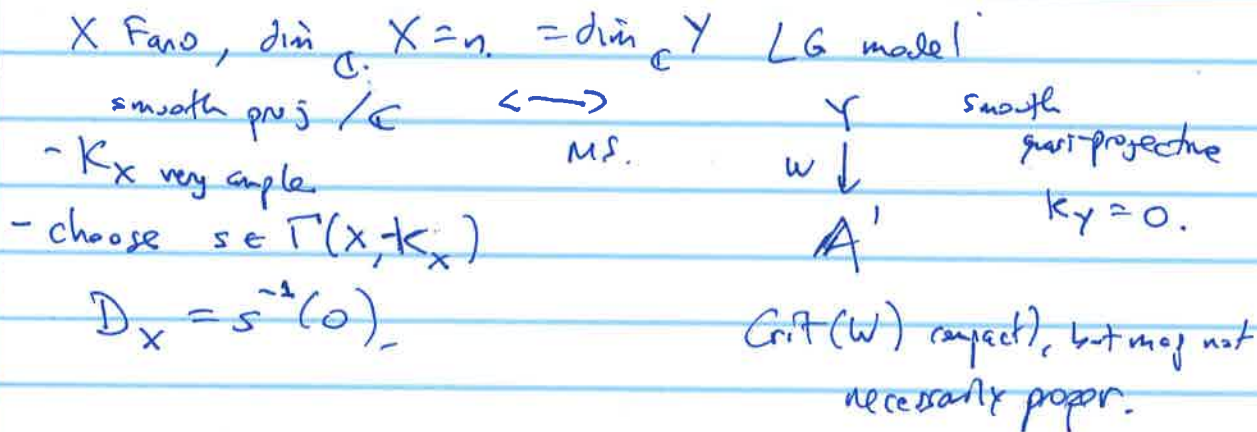 X Fano, dim_ℂ X = n. = dim_ℂ Y LG model
smooth proj /ℂ <—> Y smooth
M.S. W ↓ quasi-projective
-K_X very ample K_Y = 0.
- choose s ∈ Γ(X, -K_X) 𝔸^1
D_X = s^{-1}(0).
Crit(W) compact), but may not
necessarily proper.